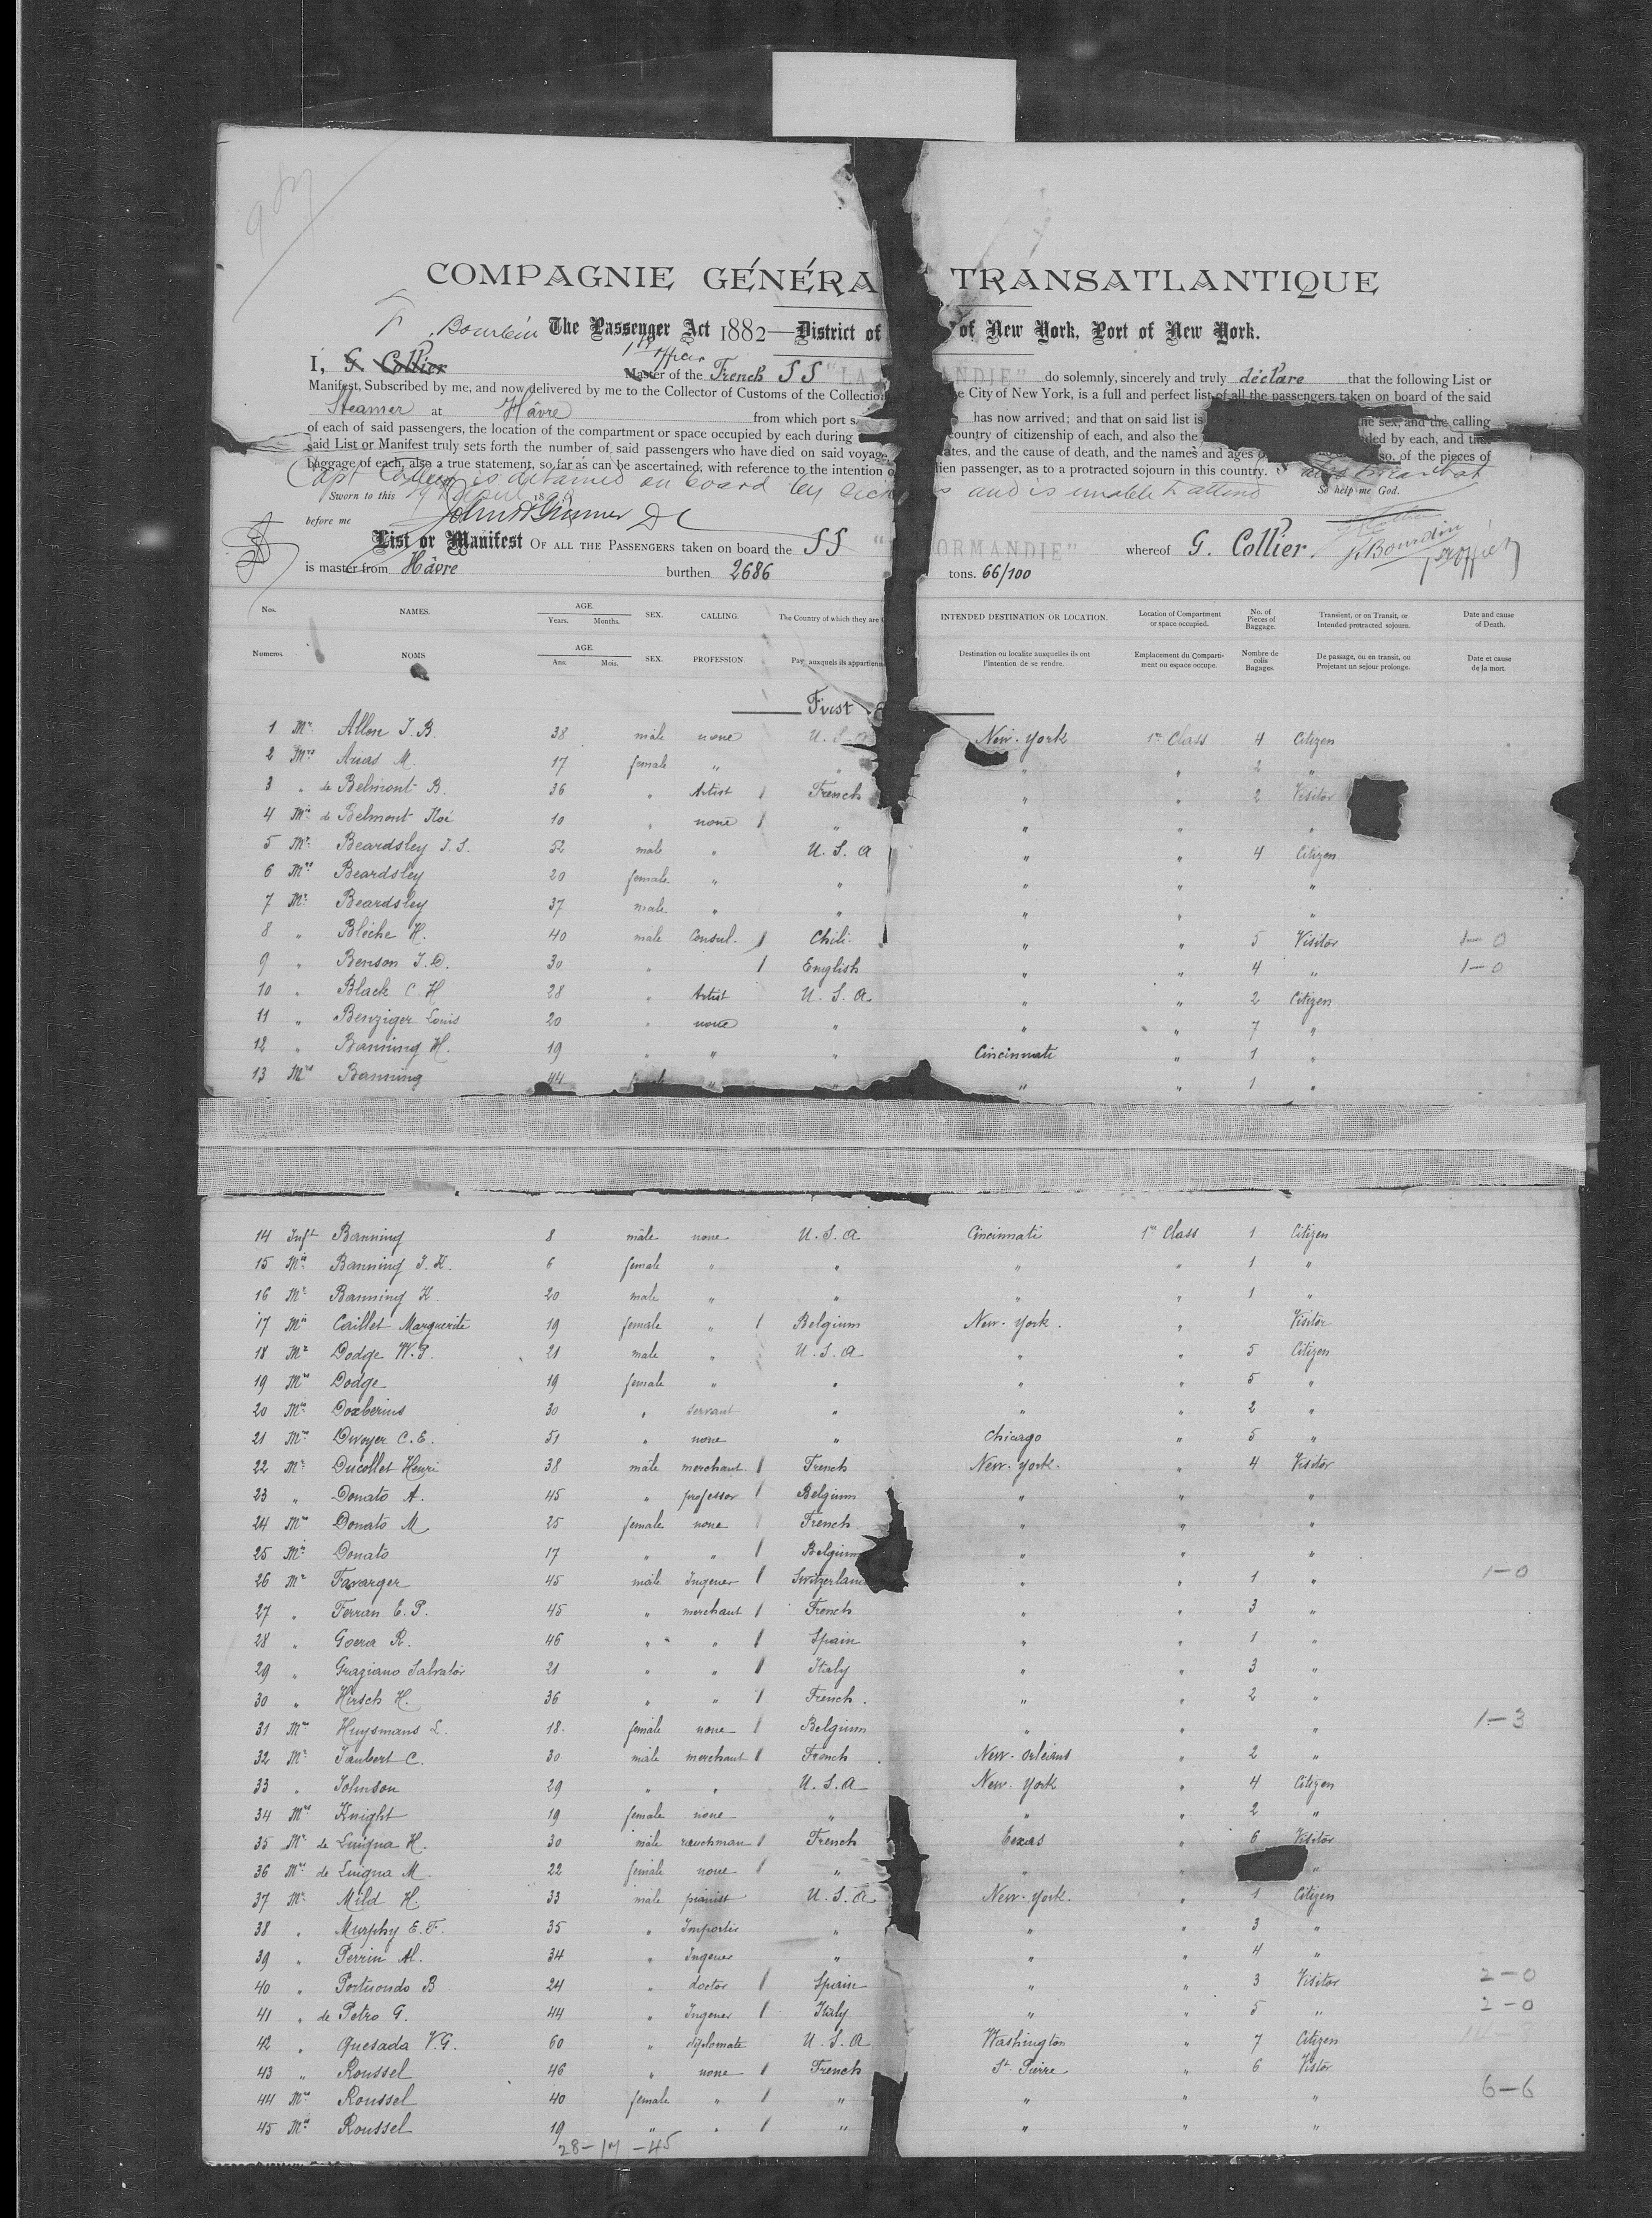 COMPAGNIE GÉNÉRA TRANSATLANTIQUE
F. Bourdin The Passenger Act 1882—District of of New York, Port of New York.
1st Officer
I, G. Collier Master of the French SS "LA ANDIE" do solemnly, sincerely and truly déclare that the following List or
Manifest, Subscribed by me, and now delivered by me to the Collector of Customs of the Collection e City of New York, is a full and perfect list of all the passengers taken on board of the said
Steamer at Hâvre from which port s has now arrived; and that on said list is he sex, and the calling
of each of said passengers, the location of the compartment or space occupied by each during country of citizenship of each, and also the ded by each, and that
said List or Manifest truly sets forth the number of said passengers who have died on said voyage ates, and the cause of death, and the names and ages o so, of the pieces of
baggage of each, also a true statement, so far as can be ascertained, with reference to the intention o lien passenger, as to a protracted sojourn in this country.
Capt Collier is detained on board by sick s and is unable to attend So help me God.
Sworn to this 18
before me
List or Manifest OF ALL THE PASSENGERS taken on board the SS " ORMANDIE" whereof G. Collier
is master from Hâvre burthen 2686 tons. 66/100
Nos. NAMES. AGE. Years. Months. SEX. CALLING. The Country of which they are INTENDED DESTINATION OR LOCATION. Location of Compartment or space occupied. No. of Pieces of Baggage. Transient, or on Transit, or Intended protracted sojourn. Date and cause of Death.
Numeros. NOMS AGE. Ans. Mois. SEX. PROFESSION. Pay auxquels ils appartienn Destination ou localite auxquelles ils ont l'intention de se rendre. Emplacement du Comparti- ment ou espace occupe. Nombre de colis Bagages. De passage, ou en transit, ou Projetant un sejour prolonge. Date et cause de la mort.
First
1 Mr Allen J. B. 38 male none U. S. A New-York 1re Class 4 Citizen
2 Mrs Arias M. 17 female " " " " 2 "
3 " de Belmont B. 36 " Artist French " " 2 Visitor
4 Mis de Belmont 10 " none " " " "
5 Mr Beardsley J. S. 52 male " U. S. A " " 4 Citizen
6 Mrs Beardsley 20 female " " " " "
7 Mr Beardsley 37 male " " " " "
8 " Blèche H. 40 male Consul. Chili " " 5 Visitor
9 " Benson J. D. 30 " English " " 4 " 1-0
10 " Black C. H 28 " Artist U. S. A " " 2 Citizen
11 " Benziger Louis 20 " none " " " 7 "
12 " Banning H. 19 " " " Cincinnati " 1 "
13 Mrs Banning 44 " " " " 1 "
14 Inft Banning 8 male none U. S. A Cincinnati 1re Class 1 Citizen
15 Mis Banning J. K. 6 female " " " " 1 "
16 Mr Banning K. 20 male " " " " 1 "
17 Mis Caillet Marguerite 19 female " Belgium New-York. " Visitor
18 Mr Dodge W. P. 21 male " U. S. A " " 5 Citizen
19 Mrs Dodge 19 female " " " " 5 "
20 Mis Doxberius 30 " servant " " " 2 "
21 Mrs Dwyer C. E. 51 " none " Chicago " 5 "
22 Mr Ducollet Henri 38 male merchant French New-York. " 4 Visitor
23 " Donato A. 45 " professor Belgium " " "
24 Mrs Donato M 25 female none French " " "
25 Mis Donato 17 " " Belgium " " "
26 Mr Favarger 45 male Ingener Switzerland " " 1 " 1-0
27 " Ferran E. P. 45 " merchant French " " 3 "
28 " Goera R. 46 " " Spain " " 1 "
29 " Graziano Salvator 21 " " Italy " " 3 "
30 " Hirsch H. 36 " " French. " " 2 "
31 Mrs Huysmans L. 18. female none Belgium " " " 1-3
32 Mr Jaubert C. 30 male merchant French New-Orléans " 2 "
33 " Johnson 29 " " U. S. A New-York " 4 Citizen
34 Mrs Knight 19 female none " " " 2 "
35 Mr de Luigna H. 30 male ranchman French Texas " 6 Visitor
36 Mrs de Luigna M. 22 female none " " " "
37 Mr Mild H. 33 male pianist U. S. A New-York. " 1 Citizen
38 " Murphy E. F. 35 " Importer " " " 3 "
39 " Perrin M. 34 " Ingener " " " 4 "
40 " Portuondo B 24 " doctor Spain " " 3 Visitor 2-0
41 " de Petro G. 44 " Ingener Italy " " 5 " 2-0
42 " Quesada V. G. 60 " diplomate U. S. A Washington " 7 Citizen
43 " Roussel 46 " none French St. Pierre " 6 Vistor
44 Mrs Roussel 40 female " " " " " 6-6
45 Mis Roussel 19 " " " " " "
28-17-45